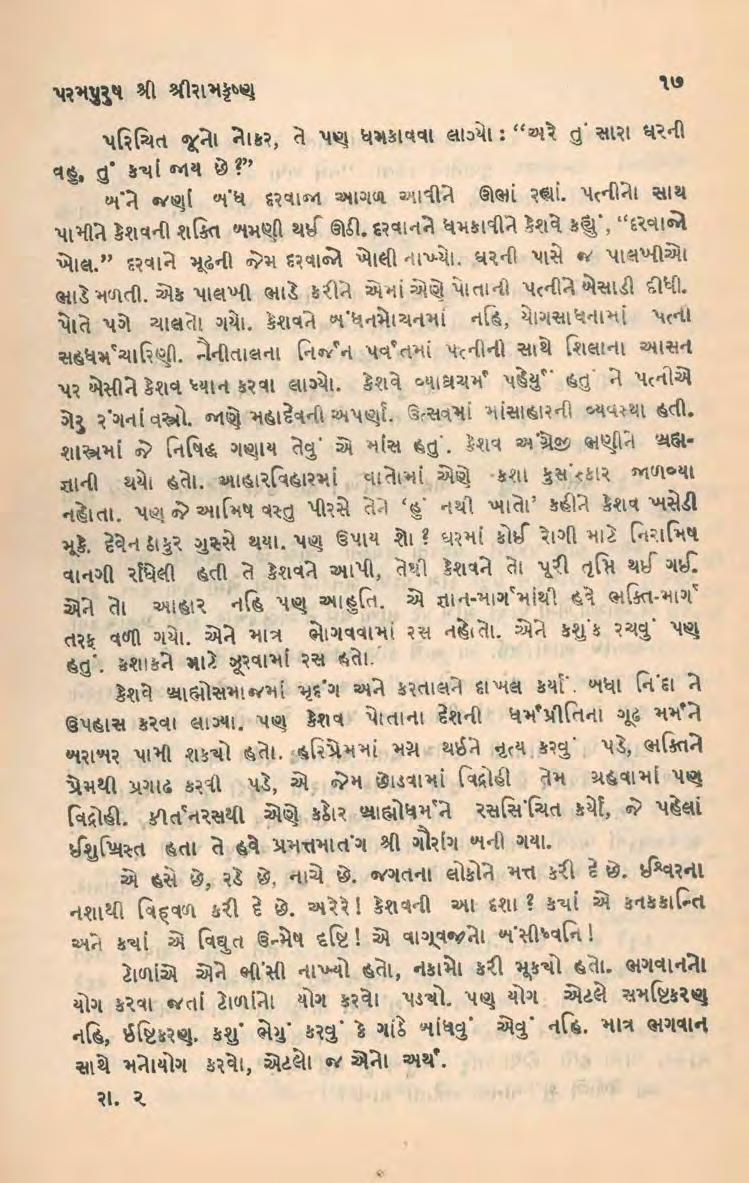 પરમપુરુષ શ્રી શ્રીરામકૃષ્ણ
૧૭
પરિચિત જૂનો નોકર, તે પણ ધમકાવવા લાગ્યો : “અરે તું સારા ઘરની
વહુ, તું ક્યાં જાય છે ?”
બંને જણાં બંધ દરવાજા આગળ આવીને ઊભાં રહ્યાં. પત્નીનો સાથ
પામીને કેશવની શક્તિ બમણી થઈ ઊઠી. દરવાનને ધમકાવીને કેશવે કહ્યું, “દરવાજો
ખોલ.” દરવાને મૂઢની જેમ દરવાજો ખોલી નાખ્યો. ઘરની પાસે જ પાલખીઓ
ભાડે મળતી. એક પાલખી ભાડે કરીને એમાં એણે પોતાની પત્નીને બેસાડી દીધી.
પોતે પગે ચાલતો ગયો. કેશવને બંધનમોચનમાં નહિ, યોગસાધનામાં પત્ની
સહધર્મચારિણી. નૈનીતાલના નિર્જન પર્વતમાં પત્નીની સાથે શિલાના આસન
પર બેસીને કેશવ ધ્યાન કરવા લાગ્યો. કેશવે વ્યાઘ્રચર્મ પહેર્યું હતું ને પત્નીએ
ગેરુ રંગનાં વસ્ત્રો. જાણે મહાદેવની અપર્ણા. ઉત્સવમાં માંસાહારની વ્યવસ્થા હતી.
શાસ્ત્રમાં જે નિષિદ્ધ ગણાય તેવું એ માંસ હતું. કેશવ અંગ્રેજી ભણીને બ્રહ્મ-
જ્ઞાની થયો હતો. આહારવિહારમાં વાતોમાં એણે કશા કુસંસ્કાર જાળવ્યા
નહોતા. પણ જે આમિષ વસ્તુ પીરસે તેને ‘હું નથી ખાતો’ કહીને કેશવ ખસેડી
મૂકે. દેવેન ઠાકુર ગુસ્સે થયા. પણ ઉપાય શો ? ઘરમાં કોઈ રોગી માટે નિરામિષ
વાનગી રાંધેલી હતી તે કેશવને આપી, તેથી કેશવને તો પૂરી તૃપ્તિ થઈ ગઈ.
એને તો આહાર નહિ પણ આહુતિ. એ જ્ઞાન-માર્ગમાંથી હવે ભક્તિ-માર્ગ
તરફ વળી ગયો. એને માત્ર ભોગવવામાં રસ નહોતો. એને કશુંક રચવું પણ
હતું. કશાકને માટે ઝૂરવામાં રસ હતો.
કેશવે બ્રાહ્મોસમાજમાં મૃદંગ અને કરતાલને દાખલ કર્યાં. બધા નિંદા ને
ઉપહાસ કરવા લાગ્યા. પણ કેશવ પોતાના દેશની ધર્મપ્રીતિના ગૂઢ મર્મને
બરાબર પામી શક્યો હતો. હરિપ્રેમમાં મગ્ન થઈને નૃત્ય કરવું પડે, ભક્તિને
પ્રેમથી પ્રગાઢ કરવી પડે, એ જેમ છોડવામાં વિદ્રોહી તેમ ગ્રહવામાં પણ
વિદ્રોહી. કીર્તનરસથી એણે કઠોર બ્રાહ્મોધર્મને રસસિંચિત કર્યો, જે પહેલાં
ઈશુખ્રિસ્ત હતા તે હવે પ્રમત્તમાતંગ શ્રી ગૌરાંગ બની ગયા.
એ હસે છે, રડે છે, નાચે છે. જગતના લોકોને મત્ત કરી દે છે. ઈશ્વરના
નશાથી વિહ્વળ કરી દે છે. અરેરે! કેશવની આ દશા ? ક્યાં એ કનકકાન્તિ
અને ક્યાં એ વિદ્યુત ઉન્મેષ દૃષ્ટિ! એ વાગ્વજ્રનો બંસીધ્વનિ!
ટોળાંએ એને ભીંસી નાખ્યો હતો, નકામો કરી મૂક્યો હતો. ભગવાનનો
યોગ કરવા જતાં ટોળાંનો યોગ કરવો પડ્યો. પણ યોગ એટલે સમષ્ટિકરણ
નહિ, ઈષ્ટિકરણ. કશું ભેગું કરવું કે ગાંઠે બાંધવું એવું નહિ. માત્ર ભગવાન
સાથે મનોયોગ કરવો, એટલો જ એનો અર્થ.
રા. ૨